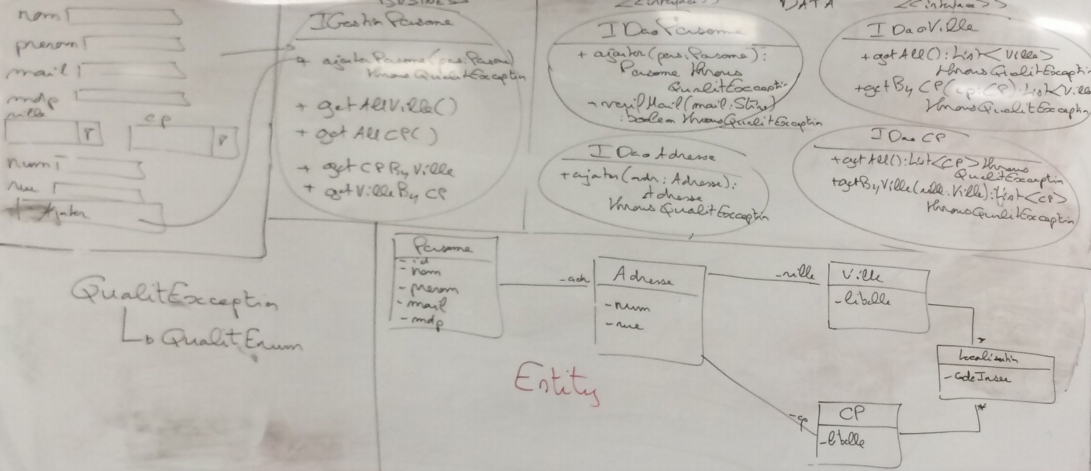 nom
prenom
mail
mdp
ville
cp
num
rue
Ajouter
BUSINESS
IGestion Personne
+ ajouter Personne (pers: Personne)
throws QualitException
+ getAllVille()
+ getAllCP()
+ getCPByVille
+ getVilleByCP
DATA
<<interface>>
IDaoPersonne
+ ajouter(pers: Personne):
Personne throws
QualitException
+ verifMail(mail: String)
: boolean throws QualitException
IDaoAdresse
+ ajouter(adr: Adresse):
Adresse
throws QualitException
<<interface>>
IDaoVille
+ getAll(): List<Ville>
throws QualitException
+ getByCP(cp: CP): List<Ville
throws QualitException
IDaoCP
+ getAll(): List<CP> throws
QualitException
+ getByVille(ville: Ville): List<CP>
throws QualitException
QualitException
QualitEnum
Personne
- id
- nom
- prenom
- mail
- mdp
- adr
Adresse
- num
- rue
- ville
Ville
- libelle
*
Localisation
- codeInsee
*
- cp
CP
- libelle
Entity